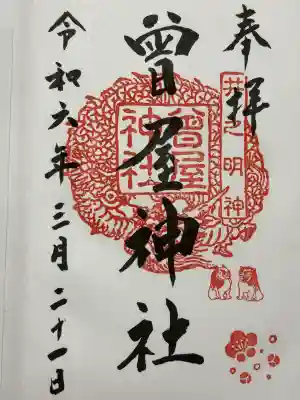 奉拝
井之明神
曾屋神社
曾屋
神社
令和六年三月二十一日